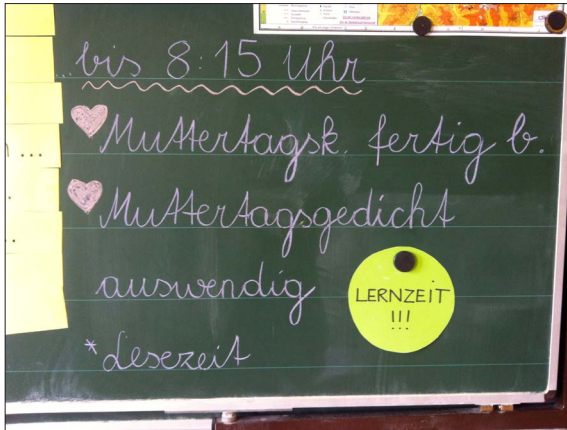 ...bis 8:15 Uhr
Muttertagsk. fertig b.
Muttertagsgedicht
auswendig
LERNZEIT
!!!
*Lesezeit